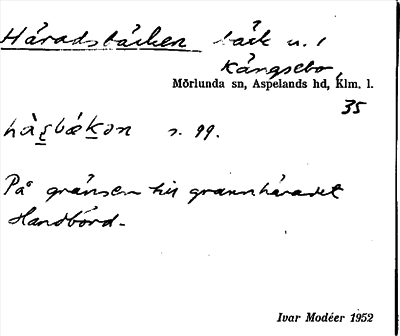 Häradsbäcken bäck n. /
Kängsebo,
Mörlunda sn, Aspelands hd, Klm. l.
35
hàṣbǽkən s. 99.
På gränsen till grannhäradet
Handbörd.
Ivar Modéer 1952